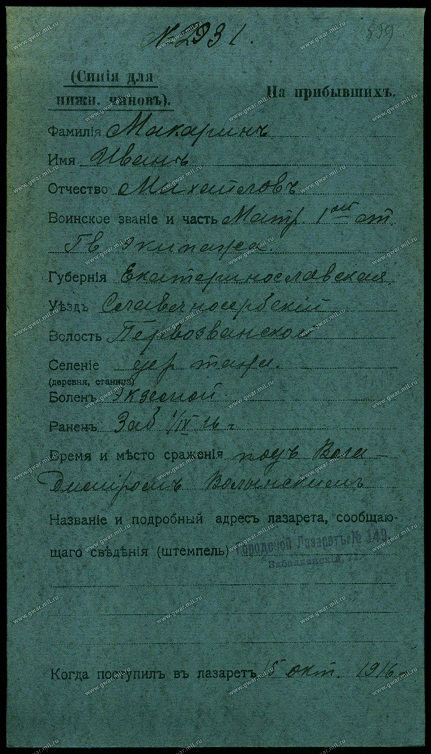 № 2931.
599
(Синія для
нижн. чиновъ).
На прибывшихъ.
Фамилія Макаринъ
Имя Иванъ
Отчество Михайловъ
Воинское званіе и часть Матр. 1ой от
Гв. экипажа.
Губернія Екатеринославская
Уѣздъ Славяносербскій
Волость Первозванской
Селеніе дер. тажа.
(деревня, станица)
Боленъ Экземой
Раненъ Заб 1/IX 16 г
Время и мѣсто сраженія подъ Влад-
Волынскимъ
Названіе и подробный адресъ лазарета, сообщаю-
щаго свѣдѣнія (штемпель) Городской Лазаретъ № 149.
Когда поступилъ въ лазаретъ 15 окт. 1916
www.gwar.mil.ru